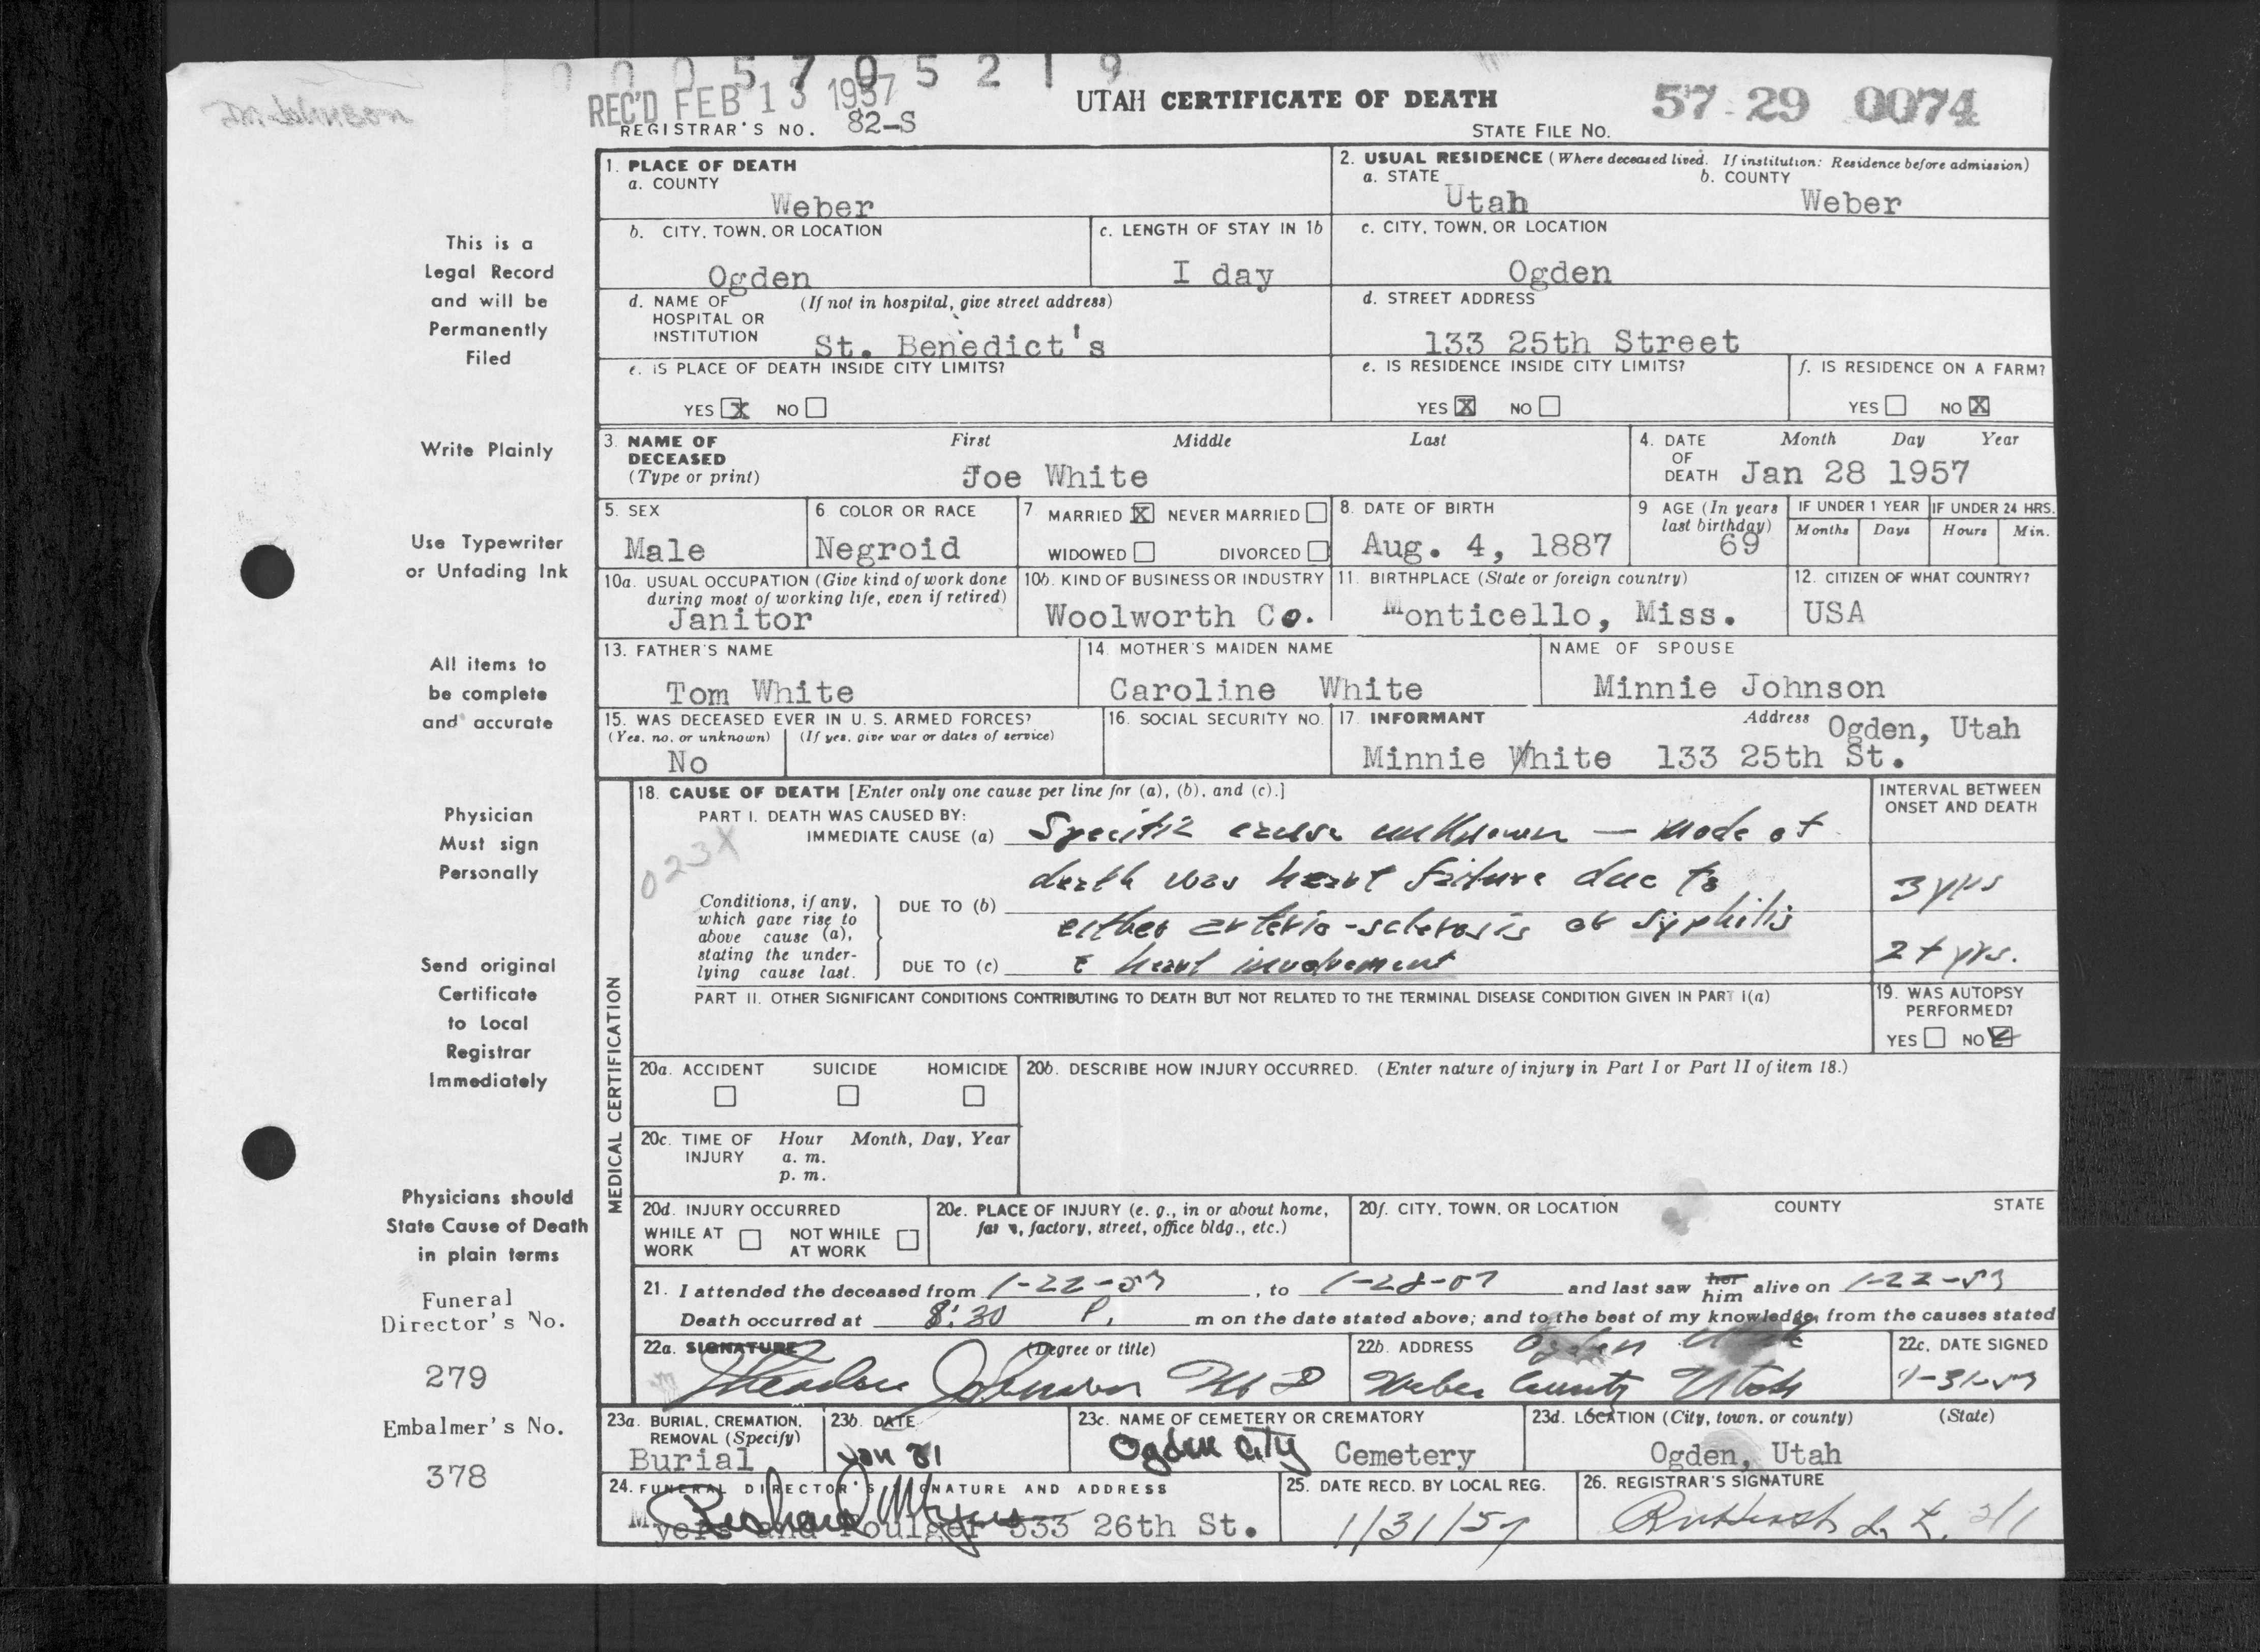 0 0 0 5 7 0 5 2 1 9
Dr. Johnson
REC'D FEB 13 1957
REGISTRAR'S NO. 82-S
UTAH CERTIFICATE OF DEATH
STATE FILE NO. 57 29 0074
This is a
Legal Record
and will be
Permanently
Filed
Write Plainly
Use Typewriter
or Unfading Ink
All items to
be complete
and accurate
Physician
Must sign
Personally
Send original
Certificate
to Local
Registrar
Immediately
Physicians should
State Cause of Death
in plain terms
Funeral
Director's No.
279
Embalmer's No.
378
1. PLACE OF DEATH
a. COUNTY
Weber
2. USUAL RESIDENCE (Where deceased lived. If institution: Residence before admission)
a. STATE b. COUNTY
Utah Weber
b. CITY, TOWN, OR LOCATION
Ogden
c. LENGTH OF STAY IN 1b
I day
c. CITY, TOWN, OR LOCATION
Ogden
d. NAME OF (If not in hospital, give street address)
HOSPITAL OR
INSTITUTION St. Benedict's
d. STREET ADDRESS
133 25th Street
e. IS PLACE OF DEATH INSIDE CITY LIMITS?
YES X NO
e. IS RESIDENCE INSIDE CITY LIMITS?
YES X NO
f. IS RESIDENCE ON A FARM?
YES NO X
3. NAME OF First Middle Last
DECEASED
(Type or print) Joe White
4. DATE Month Day Year
OF
DEATH Jan 28 1957
5. SEX
Male
6. COLOR OR RACE
Negroid
7 MARRIED X NEVER MARRIED
WIDOWED DIVORCED
8. DATE OF BIRTH
Aug. 4, 1887
9 AGE (In years
last birthday)
69
IF UNDER 1 YEAR IF UNDER 24 HRS.
Months Days Hours Min.
10a. USUAL OCCUPATION (Give kind of work done
during most of working life, even if retired)
Janitor
10b. KIND OF BUSINESS OR INDUSTRY
Woolworth Co.
11. BIRTHPLACE (State or foreign country)
Monticello, Miss.
12. CITIZEN OF WHAT COUNTRY?
USA
13. FATHER'S NAME
Tom White
14. MOTHER'S MAIDEN NAME
Caroline White
NAME OF SPOUSE
Minnie Johnson
15. WAS DECEASED EVER IN U. S. ARMED FORCES?
(Yes, no, or unknown) (If yes, give war or dates of service)
No
16. SOCIAL SECURITY NO.
17. INFORMANT Address Ogden, Utah
Minnie White 133 25th St.
MEDICAL CERTIFICATION
18. CAUSE OF DEATH [Enter only one cause per line for (a), (b), and (c).]
INTERVAL BETWEEN
ONSET AND DEATH
PART I. DEATH WAS CAUSED BY:
IMMEDIATE CAUSE (a) Specific cause unknown — Mode of
023X
death was heart failure due to 3 yrs
Conditions, if any,
which gave rise to
above cause (a),
stating the under-
lying cause last.
DUE TO (b)
either arterio-sclerosis or syphilis
DUE TO (c) c heart involvement 2+ yrs.
PART II. OTHER SIGNIFICANT CONDITIONS CONTRIBUTING TO DEATH BUT NOT RELATED TO THE TERMINAL DISEASE CONDITION GIVEN IN PART I(a)
19. WAS AUTOPSY
PERFORMED?
YES NO
20a. ACCIDENT SUICIDE HOMICIDE
20b. DESCRIBE HOW INJURY OCCURRED. (Enter nature of injury in Part I or Part II of item 18.)
20c. TIME OF Hour Month, Day, Year
INJURY a. m.
p. m.
20d. INJURY OCCURRED
WHILE AT NOT WHILE
WORK AT WORK
20e. PLACE OF INJURY (e. g., in or about home,
farm, factory, street, office bldg., etc.)
20f. CITY, TOWN, OR LOCATION COUNTY STATE
21. I attended the deceased from 1-22-57, to 1-28-57 and last saw her him alive on 1-22-57
Death occurred at 8:30 P. m on the date stated above; and to the best of my knowledge, from the causes stated
22a. SIGNATURE (Degree or title)
Theodore Johnson MD
22b. ADDRESS Ogden Utah
Weber County Utah
22c. DATE SIGNED
1-31-57
23a. BURIAL, CREMATION,
REMOVAL (Specify)
Burial
23b. DATE
Jan 31
23c. NAME OF CEMETERY OR CREMATORY
Ogden City Cemetery
23d. LOCATION (City, town, or county) (State)
Ogden, Utah
24. FUNERAL DIRECTOR'S SIGNATURE AND ADDRESS
Myers and Foulger 533 26th St.
25. DATE RECD. BY LOCAL REG.
1/31/57
26. REGISTRAR'S SIGNATURE
2/1